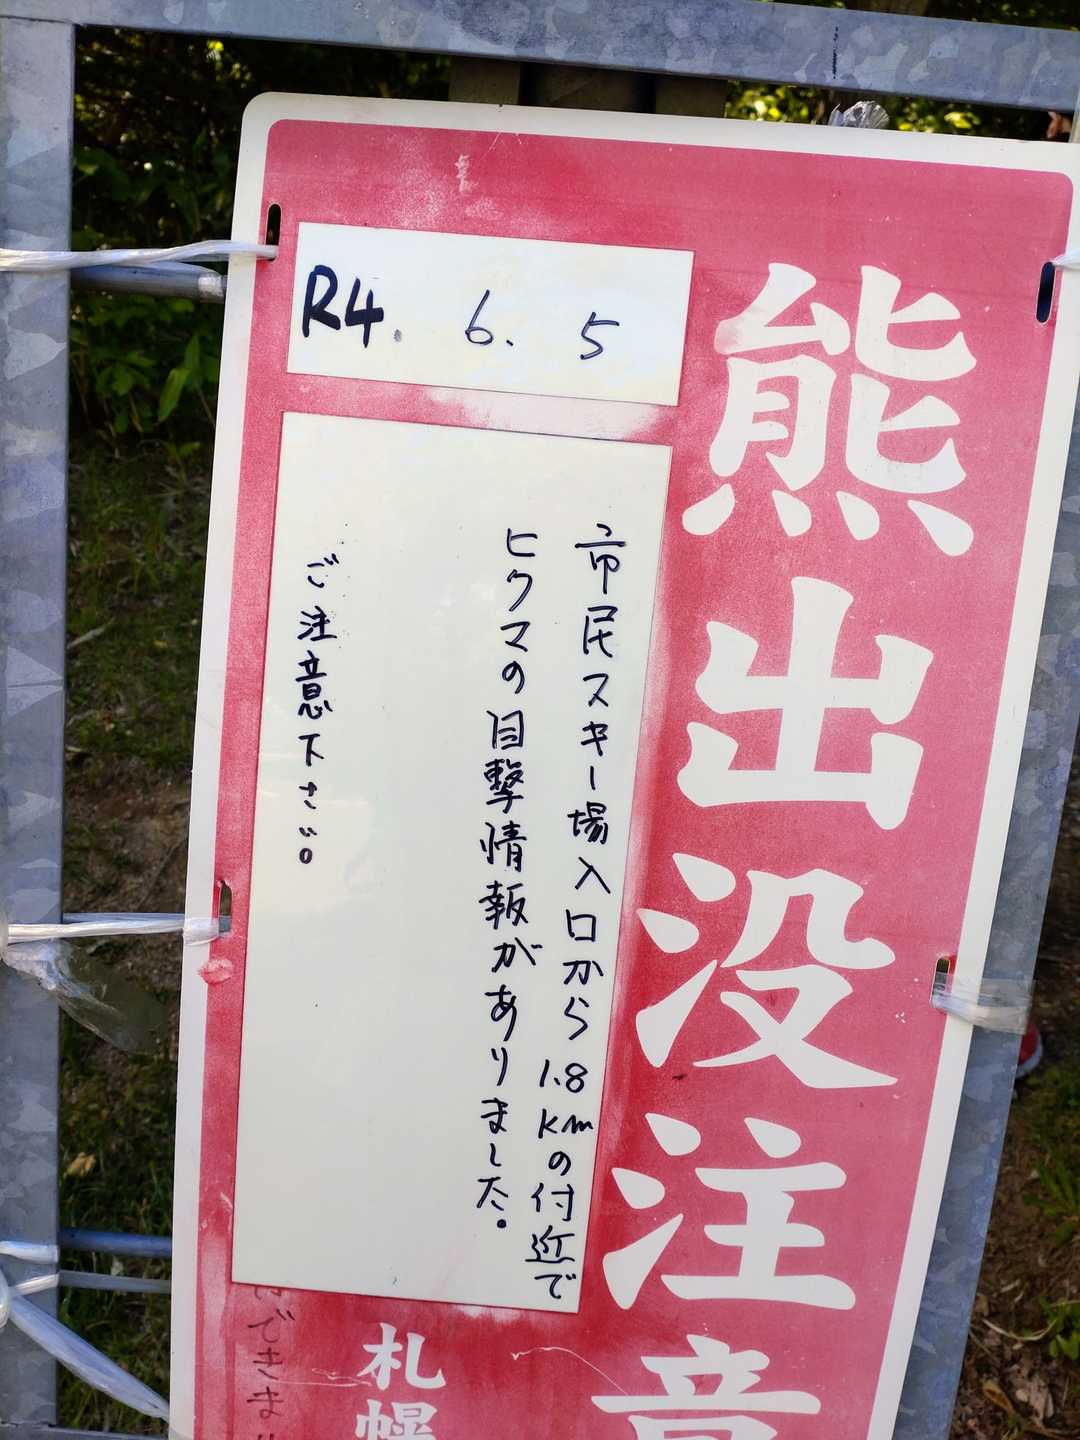 熊出没注意
R4. 6. 5
市民スキー場入口から1.8kmの付近で
ヒクマの目撃情報がありました。
ご注意下さい。
札幌
できま